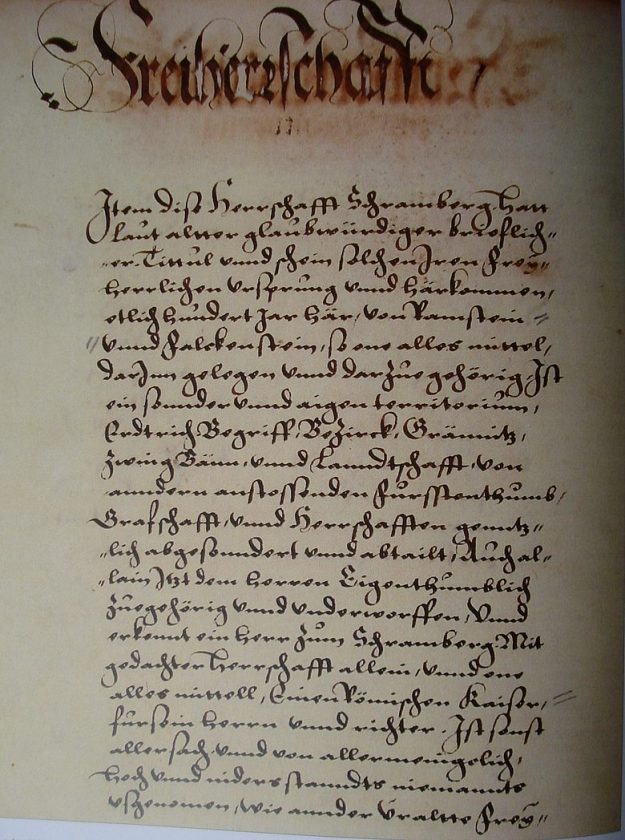 Freiherrschafft
Item dise Herrschafft Schramberg hatt
laut altter glaubwürdiger brieflich=
=er Tittul vnnd schein solchen Iren Frey=
herrlichen vrsprung vnnd härkommen,
etlich hundert Jar här, von Ramstein =
vnnd Falckenstein, so one alles mittel,
darInn gelegen vnnd darzue gehörig. Ist
ein sonder vnnd aigen territorium,
Erdtrich Begriff, Bezirck, Gränitz,
Zwing Bänn, vnnd Lanndtschafft, von
anndern anstossenden Furssttenthumb,
Grafschafft, vnnd Herrschafften genntz=
=lich abgesonndert vnnd abtailt, Auch al=
=lain Itzt dem herren Eigenthumblich
zuegehörig vnnd vnderworffen, Vnnd
erkennt ein herr zum Schramberg Mit
gedachter herrschafft allein, vnnd one
alles mittell, Einen Römischen Kaiser, =
fur sein herrn vnnd richter. Ist sonst
aller sach vnnd von allermenigelich,
hoch vnnd niders stanndts niemannts
vszgenomen, wie annder Vraltte Frey=